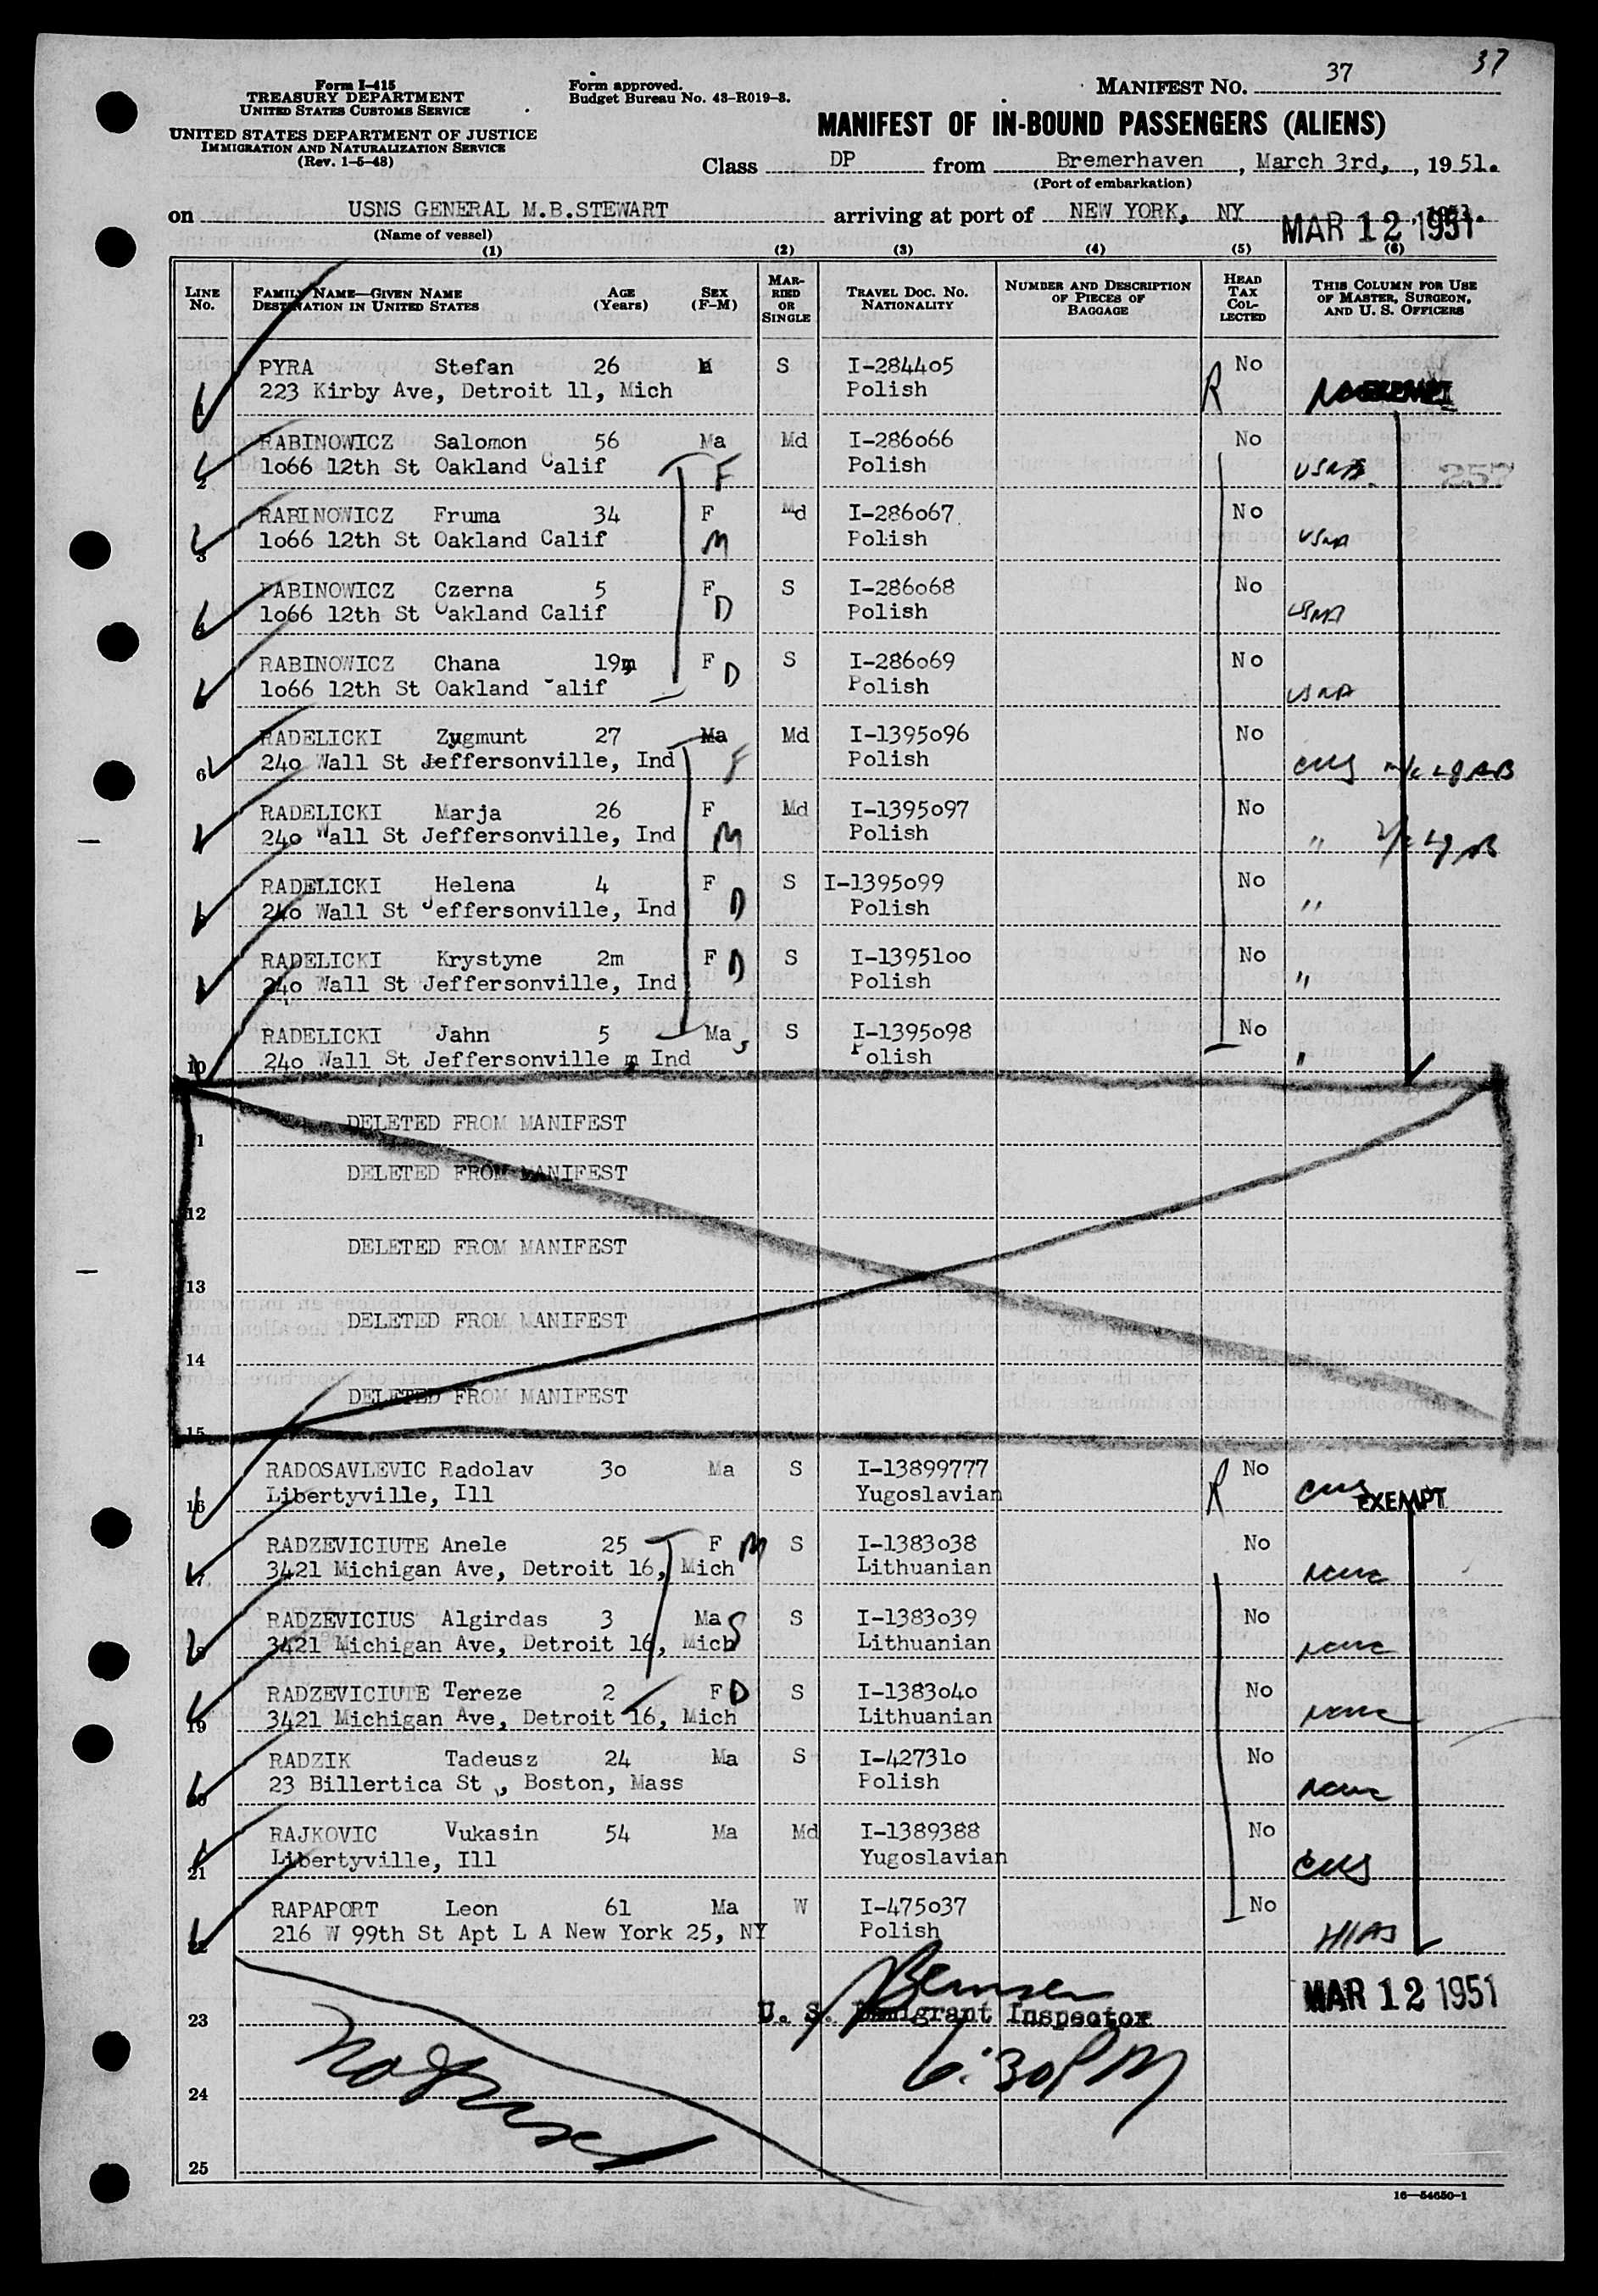 37
Form I-415
TREASURY DEPARTMENT
UNITED STATES CUSTOMS SERVICE
UNITED STATES DEPARTMENT OF JUSTICE
IMMIGRATION AND NATURALIZATION SERVICE
(Rev. 1-5-48)
Form approved.
Budget Bureau No. 43-R019-3.
MANIFEST NO. 37
MANIFEST OF IN-BOUND PASSENGERS (ALIENS)
Class DP from Bremerhaven, March 3rd, , 1951.
(Port of embarkation)
on USNS GENERAL M.B.STEWART arriving at port of NEW YORK, NY MAR 12 1951
(Name of vessel)
(1) (2) (3) (4) (5) (6)
LINE NO. FAMILY NAME—GIVEN NAME DESTINATION IN UNITED STATES AGE (Years) SEX (F-M) MARRIED OR SINGLE TRAVEL DOC. NO. NATIONALITY NUMBER AND DESCRIPTION OF PIECES OF BAGGAGE HEAD TAX COLLECTED THIS COLUMN FOR USE OF MASTER, SURGEON, AND U. S. OFFICERS
PYRA Stefan 26 S I-284405 R No
223 Kirby Ave, Detroit 11, Mich Polish
RABINOWICZ Salomon 56 Ma Md I-286066 No
2 1066 12th St Oakland Calif F Polish USNA 257
RABINOWICZ Fruma 34 F Md I-286067 No
3 1066 12th St Oakland Calif M Polish USNA
RABINOWICZ Czerna 5 F S I-286068 No
1066 12th St Oakland Calif D Polish USNA
RABINOWICZ Chana 19m F D S I-286069 No
1066 12th St Oakland Calif Polish USNA
RADELICKI Zygmunt 27 Ma Md I-1395096 No
6 240 Wall St Jeffersonville, Ind F Polish
RADELICKI Marja 26 F Md I-1395097 No
240 Wall St Jeffersonville, Ind M Polish "
RADELICKI Helena 4 F S I-1395099 No
240 Wall St Jeffersonville, Ind D Polish "
RADELICKI Krystyne 2m F D S I-1395100 No
240 Wall St Jeffersonville, Ind Polish "
RADELICKI Jahn 5 Ma S S I-1395098 No
10 240 Wall St Jeffersonville m Ind Polish "
DELETED FROM MANIFEST
1
DELETED FROM MANIFEST
12
DELETED FROM MANIFEST
13
DELETED FROM MANIFEST
14
DELETED FROM MANIFEST
15
RADOSAVLEVIC Radolav 30 Ma S I-13899777 R No
16 Libertyville, Ill Yugoslavian EXEMPT
RADZEVICIUTE Anele 25 F M S I-1383038 No
17 3421 Michigan Ave, Detroit 16, Mich Lithuanian
RADZEVICIUS Algirdas 3 Ma S S I-1383039 No
3421 Michigan Ave, Detroit 16, Mich Lithuanian
RADZEVICIUTE Tereze 2 F D S I-1383040 No
19 3421 Michigan Ave, Detroit 16, Mich Lithuanian
RADZIK Tadeusz 24 Ma S I-427310 No
23 Billertica St , Boston, Mass Polish
RAJKOVIC Vukasin 54 Ma Md I-1389388 No
21 Libertyville, Ill Yugoslavian
RAPAPORT Leon 61 Ma W I-475037 No
216 W 99th St Apt L A New York 25, NY Polish HIAS
MAR 12 1951
23 U. S. Immigrant Inspector
6:30PM
24
25
16—54650-1